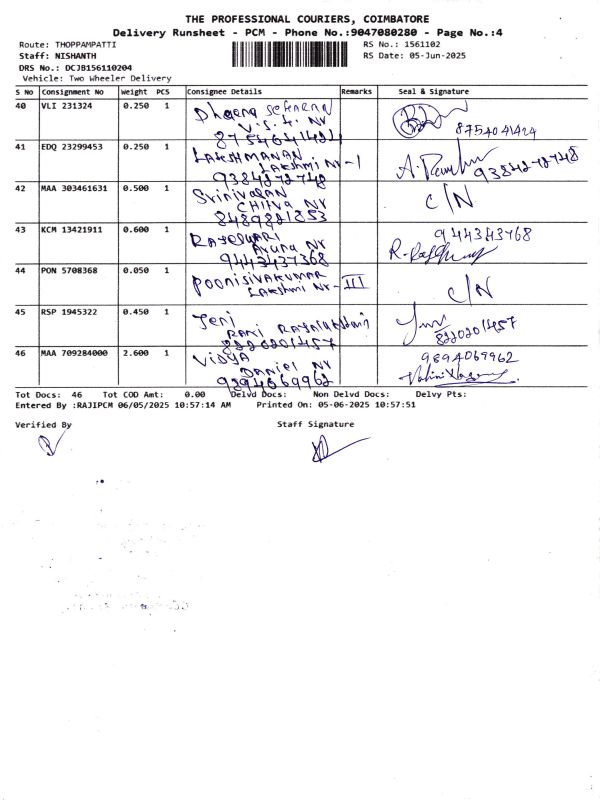 THE PROFESSIONAL COURIERS, COIMBATORE
Delivery Runsheet - PCM - Phone No.:9047080280 - Page No.:4
Route: THOPPAMPATTI RS No.: 1561102
Staff: NISHANTH RS Date: 05-Jun-2025
DRS No.: DCJB156110204
Vehicle: Two Wheeler Delivery
S No Consignment No Weight PCS Consignee Details Remarks Seal & Signature
40 VLI 231324 0.250 1
V.S.K. NR
8754641424 8754041424
41 EDQ 23299453 0.250 1 LAKSHMANAN
LAKSHMI NR-1
9384272748 9384272748
42 MAA 303461631 0.500 1 Srinivasan C/N
CHITVA NR
8489821853
43 KCM 13421911 0.600 1 RAJESWARI 944343768
Aruna NR
9443437368
44 PON 5708368 0.050 1 POONISIVAKUMAR C/N
LAKSHMI NR-III
45 RSP 1945322 0.450 1 Jeni
RANI
8220201457 8220201457
46 MAA 709284000 2.600 1 VIDYA 9894069962
DANIEL NR
9894069962
Tot Docs: 46 Tot COD Amt: 0.00 Delvd Docs: Non Delvd Docs: Delvy Pts:
Entered By :RAJIPCM 06/05/2025 10:57:14 AM Printed On: 05-06-2025 10:57:51
Verified By Staff Signature